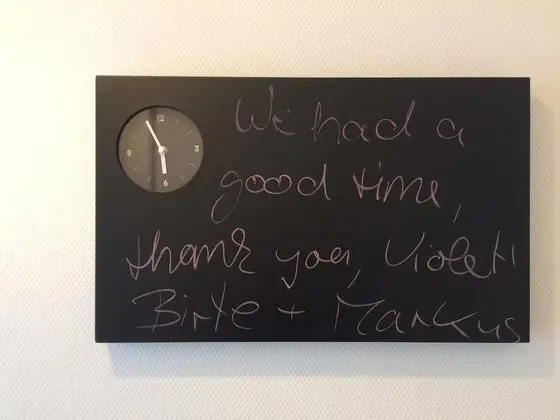 12
9 3
6
We had a
good time,
thank you, Violet!
Birte + Markus